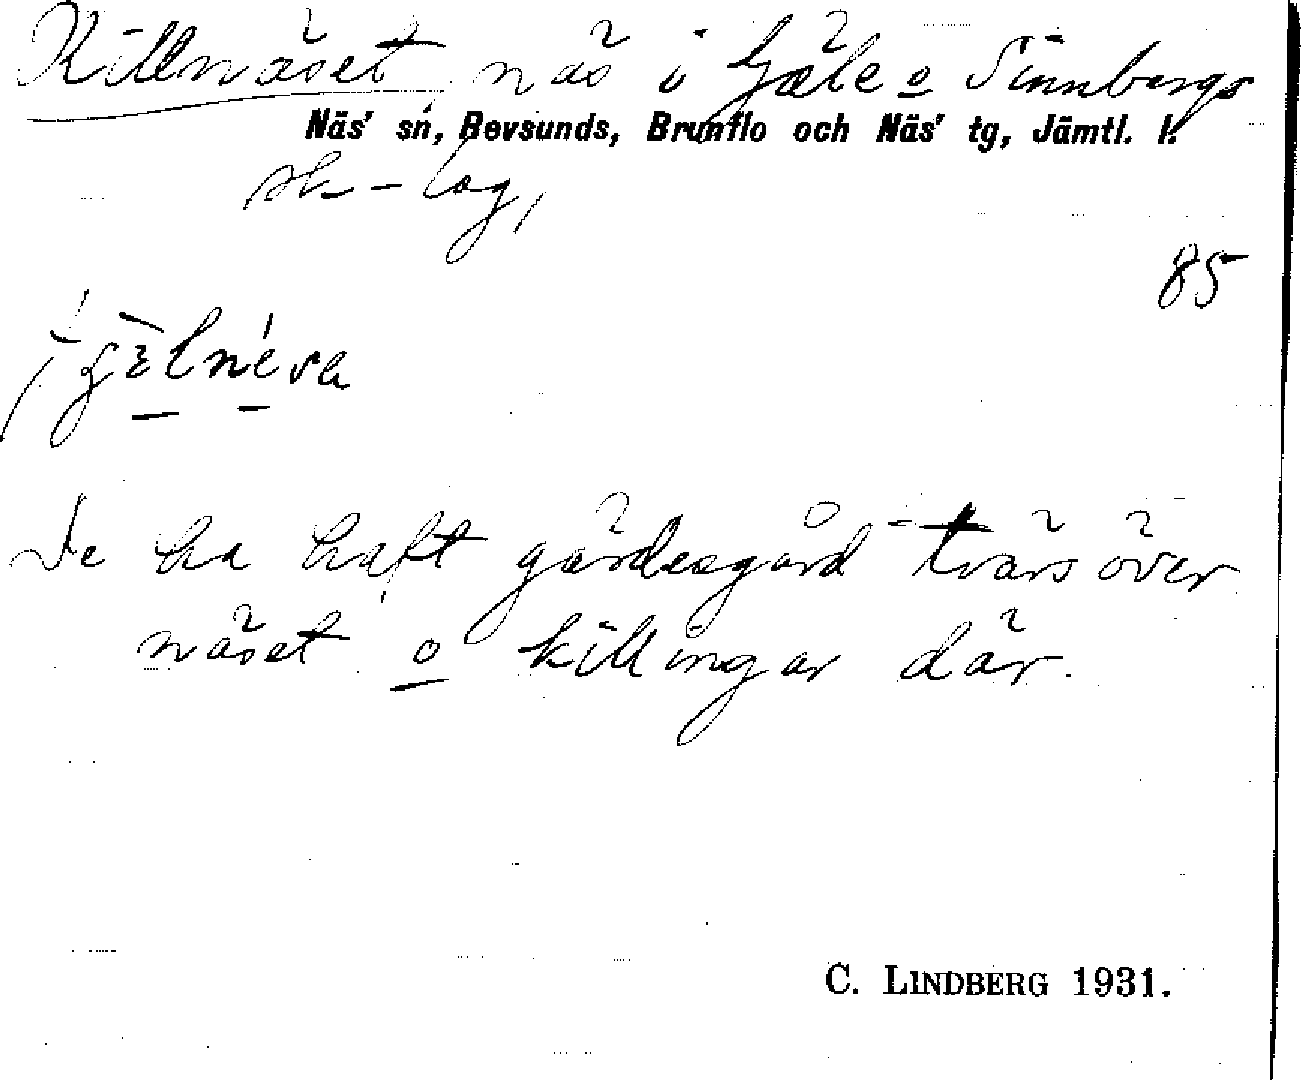 Killnäset näs i Gäle o Sinnbergs
Näs' sn, Bevsunds, Brunflo och Näs' tg, Jämtl. l.
sk-lag,
85
De ha haft gärdesgård tvärs över
näset o killingar där.
C. LINDBERG 1931.